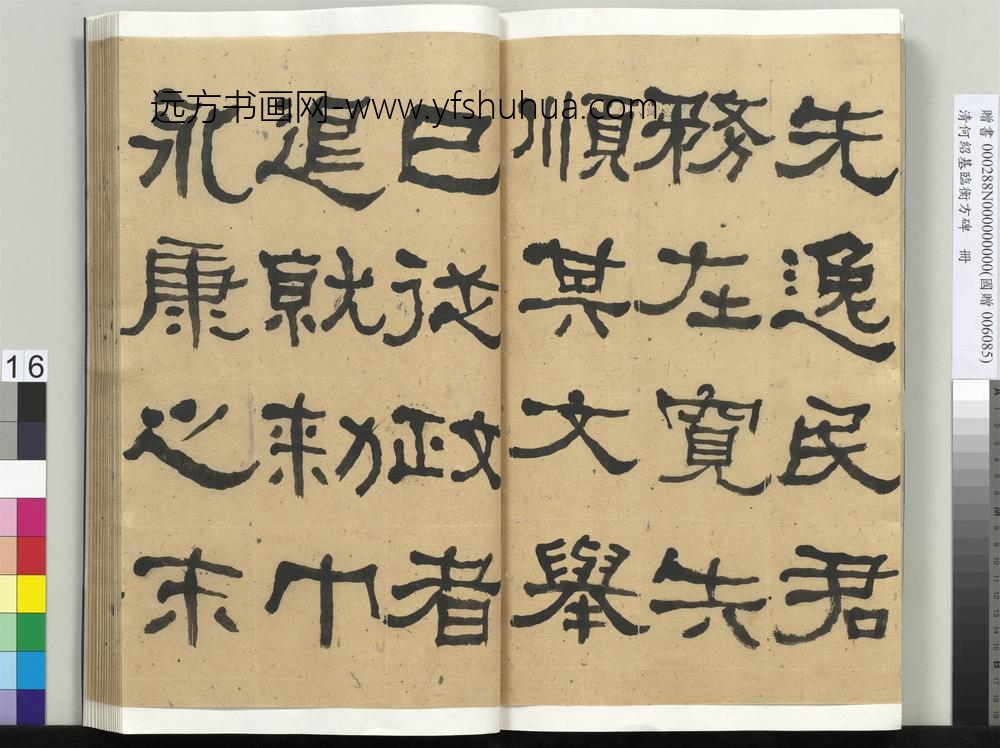 远方书画网-www.yfshuhua.com
先逸民君
務在寬失
順其文舉
已從政者
退就勑巾
永康之末
贈書 000288N000000000(國贈 006085)
清何紹基臨衡方碑 冊
16